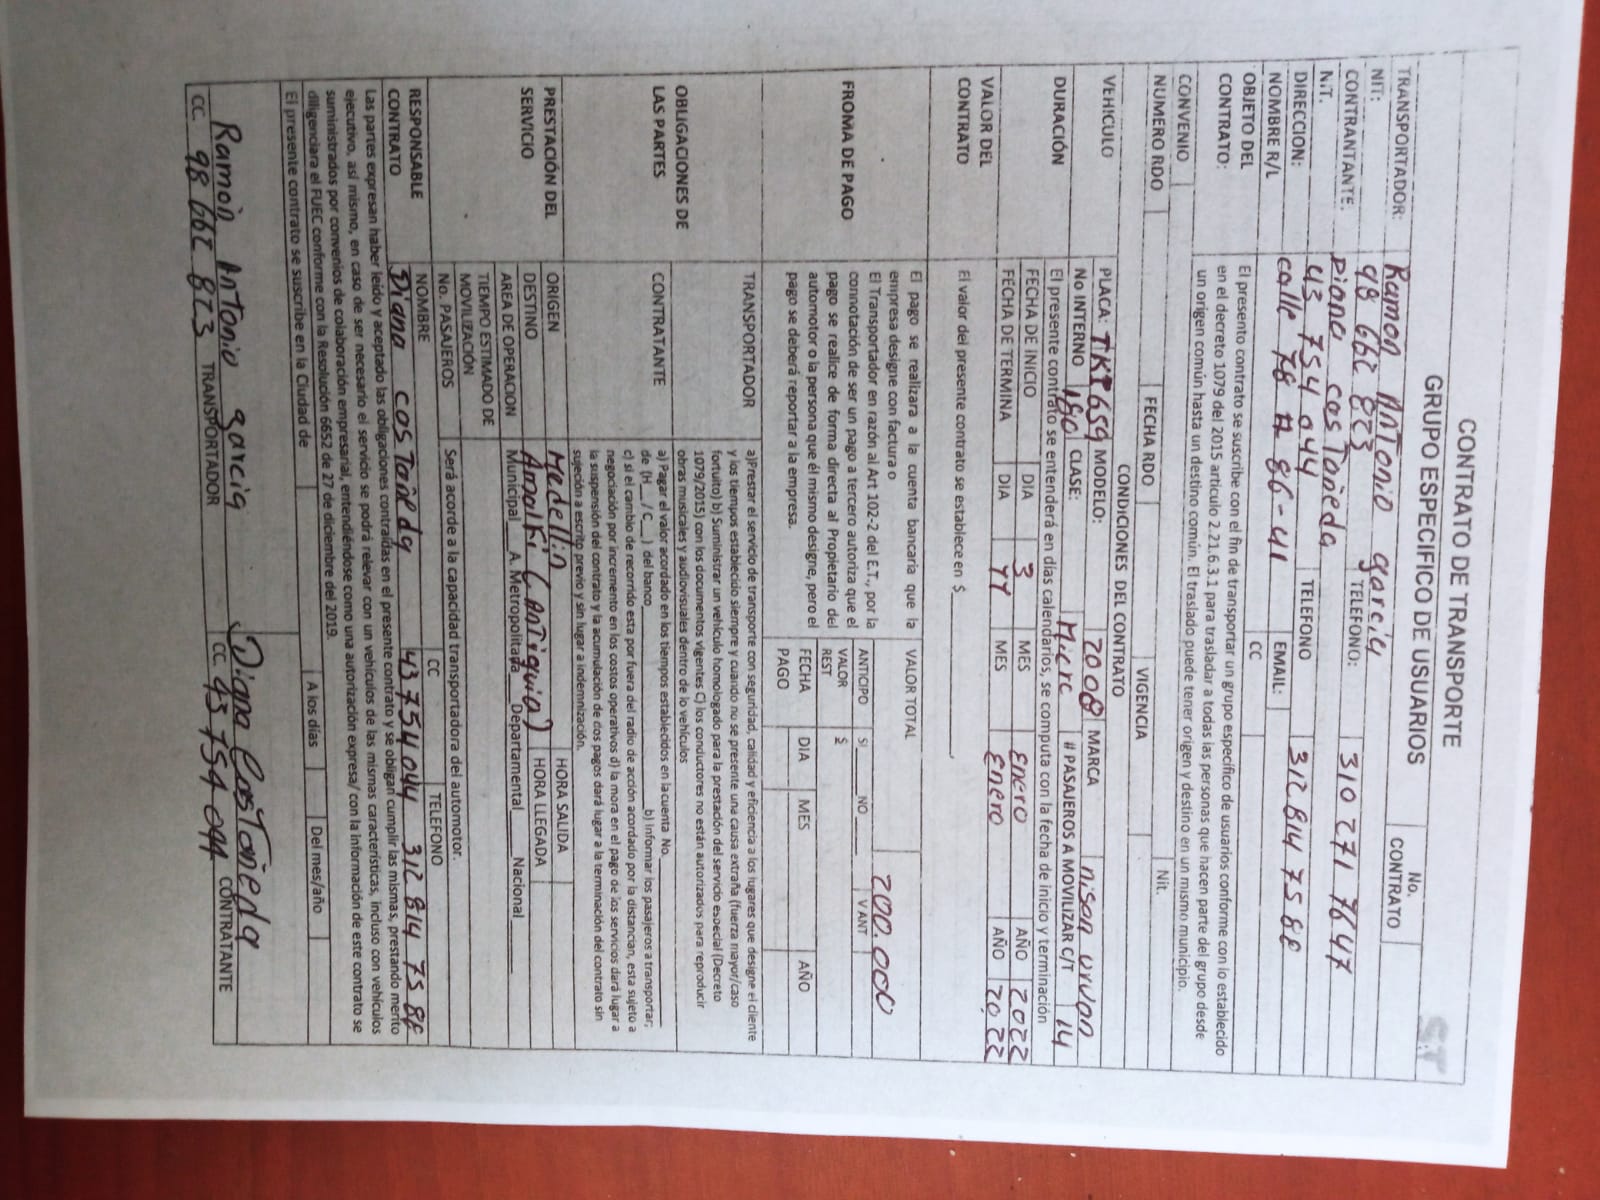 CONTRATO DE TRANSPORTE
GRUPO ESPECIFICO DE USUARIOS
S.T
No. CONTRATO
TRANSPORTADOR: Ramon Antonio garcia
NIT: 98 662 823 TELEFONO: 310 271 7647
CONTRANTANTE: Diana casTañeda
NIT. 43 754 044 TELEFONO 312 814 75 88
DIRECCION: calle 78 # 86-41 EMAIL:
NOMBRE R/L CC
OBJETO DEL CONTRATO: El presento contrato se suscribe con el fin de transportar un grupo específico de usuarios conforme con lo establecido
en el decreto 1079 del 2015 articulo 2.21.6.3.1 para trasladar a todas las personas que hacen parte del grupo desde
un origen común hasta un destino común. El traslado puede tener origen y destino en un mismo municipio.
CONVENIO Nit.
NUMERO RDO FECHA RDO VIGENCIA
CONDICIONES DEL CONTRATO
VEHICULO PLACA: TKP659 MODELO: 2008 MARCA nisan urvan
No INTERNO 180 CLASE: Micro # PASAJEROS A MOVILIZAR C/T 14
DURACIÓN El presente contrato se entenderá en días calendarios, se computa con la fecha de inicio y terminación
FECHA DE INICIO DIA 3 MES Enero AÑO 2022
FECHA DE TERMINA DIA 11 MES Enero AÑO 2022
VALOR DEL CONTRATO El valor del presente contrato se establece en $
FROMA DE PAGO
El pago se realizara a la cuenta bancaria que la
empresa designe con factura o
El Transportador en razón al Art 102-2 del E.T., por la
connotación de ser un pago a tercero autoriza que el
pago se realice de forma directa al Propietario del
automotor o la persona que él mismo designe, pero el
pago se deberá reportar a la empresa.
VALOR TOTAL 200.000
ANTICIPO SI NO V ANT
VALOR REST $
FECHA PAGO DIA MES AÑO
OBLIGACIONES DE LAS PARTES
TRANSPORTADOR a)Prestar el servicio de transporte con seguridad, calidad y eficiencia a los lugares que designe el cliente
y los tiempos establecido siempre y cuando no se presente una causa extraña (fuerza mayor/caso
fortuito) b) Suministrar un vehículo homologado para la prestación del servicio especial (Decreto
1079/2015) con los documentos vigentes C) los conductores no están autorizados para reproducir
obras musicales y audiovisuales dentro de lo vehículos
CONTRATANTE a) Pagar el valor acordado en los tiempos establecidos en la cuenta No.
de (H__/ C__) del banco b) Informar los pasajeros a transportar;
c) si el cambio de recorrido esta por fuera del radio de acción acordado por la distancian, esta sujeto a
negociación por incremento en los costos operativos d) la mora en el pago de los servicios dará lugar a
la suspensión del contrato y la acumulación de dos pagos dará lugar a la terminación del contrato sin
sujeción a escrito previo y sin lugar a indemnización.
PRESTACIÓN DEL SERVICIO
ORIGEN Medellin HORA SALIDA
DESTINO Amalfi (Antioquia) HORA LLEGADA
AREA DE OPERACION Municipal A. Metropolitana Departamental Nacional
TIEMPO ESTIMADO DE MOVILIZACIÓN
No. PASAJEROS Será acorde a la capacidad transportadora del automotor.
RESPONSABLE CONTRATO NOMBRE CC TELEFONO
Diana cosTañeda 43 754 044 312 814 75 88
Las partes expresan haber leído y aceptado las obligaciones contraídas en el presente contrato y se obligan cumplir las mismas, prestando merito
ejecutivo, así mismo, en caso de ser necesario el servicio se podrá relevar con un vehículos de las mismas características, incluso con vehículos
suministrados por convenios de colaboración empresarial, entendiéndose como una autorización expresa/ con la información de este contrato se
diligenciara el FUEC conforme con la Resolución 6652 de 27 de diciembre del 2019.
El presente contrato se suscribe en la Ciudad de A los días Del mes/año
Ramòn Antonio garcia Diana CasTañeda
CC. 98 662 823 TRANSPORTADOR CC. 43 754 044 CONTRATANTE